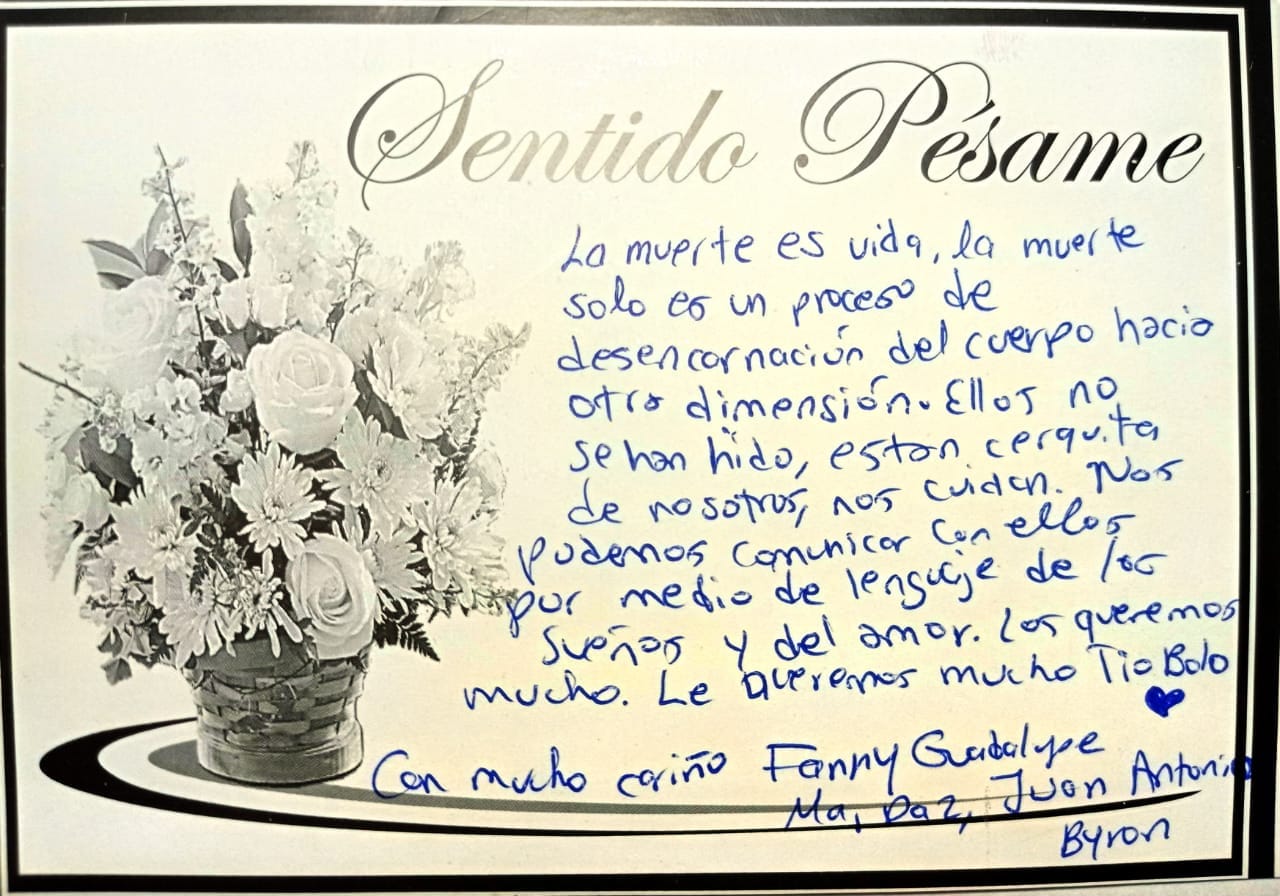 Sentido Pésame
La muerte es vida, la muerte
solo es un proceso de
desencarnación del cuerpo hacia
otra dimensión. Ellos no
se han hido, estan cerquita
de nosotros, nos cuidan. Nos
podemos comunicar con ellos
por medio de lenguaje de los
sueños y del amor. Los queremos
mucho. Le queremos mucho Tio Bolo
Con mucho cariño Fanny Guadalupe
Ma, Paz, Juan Antonio
Byron